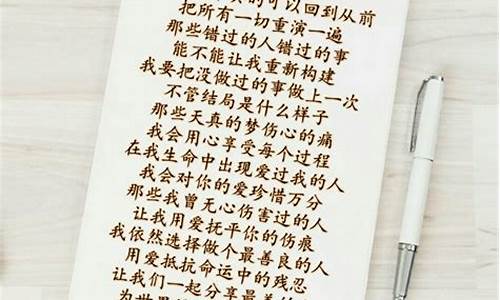 的可以回到从前
把所有一切重演一遍
那些错过的人错过的事
能不能让我重新构建
我要把没做过的事做上一次
不管结局是什么样子
那些天真的梦伤心的痛
我会用心享受每个过程
在我生命中出现爱过我的人
我会对你的爱珍惜万分
那些我曾无心伤害过的人
让我用爱抚平你的伤痕
我依然选择做个最善良的人
用爱抵抗命运中的残忍
让我们一起分享最善
为世界